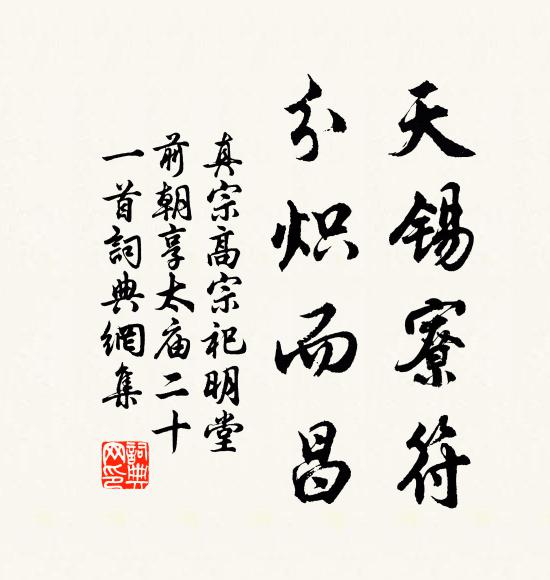 天锡寮符
分炽而昌
真宗高宗祀明堂
前朝享太庙二十
一首詞典網集
詞典
网印